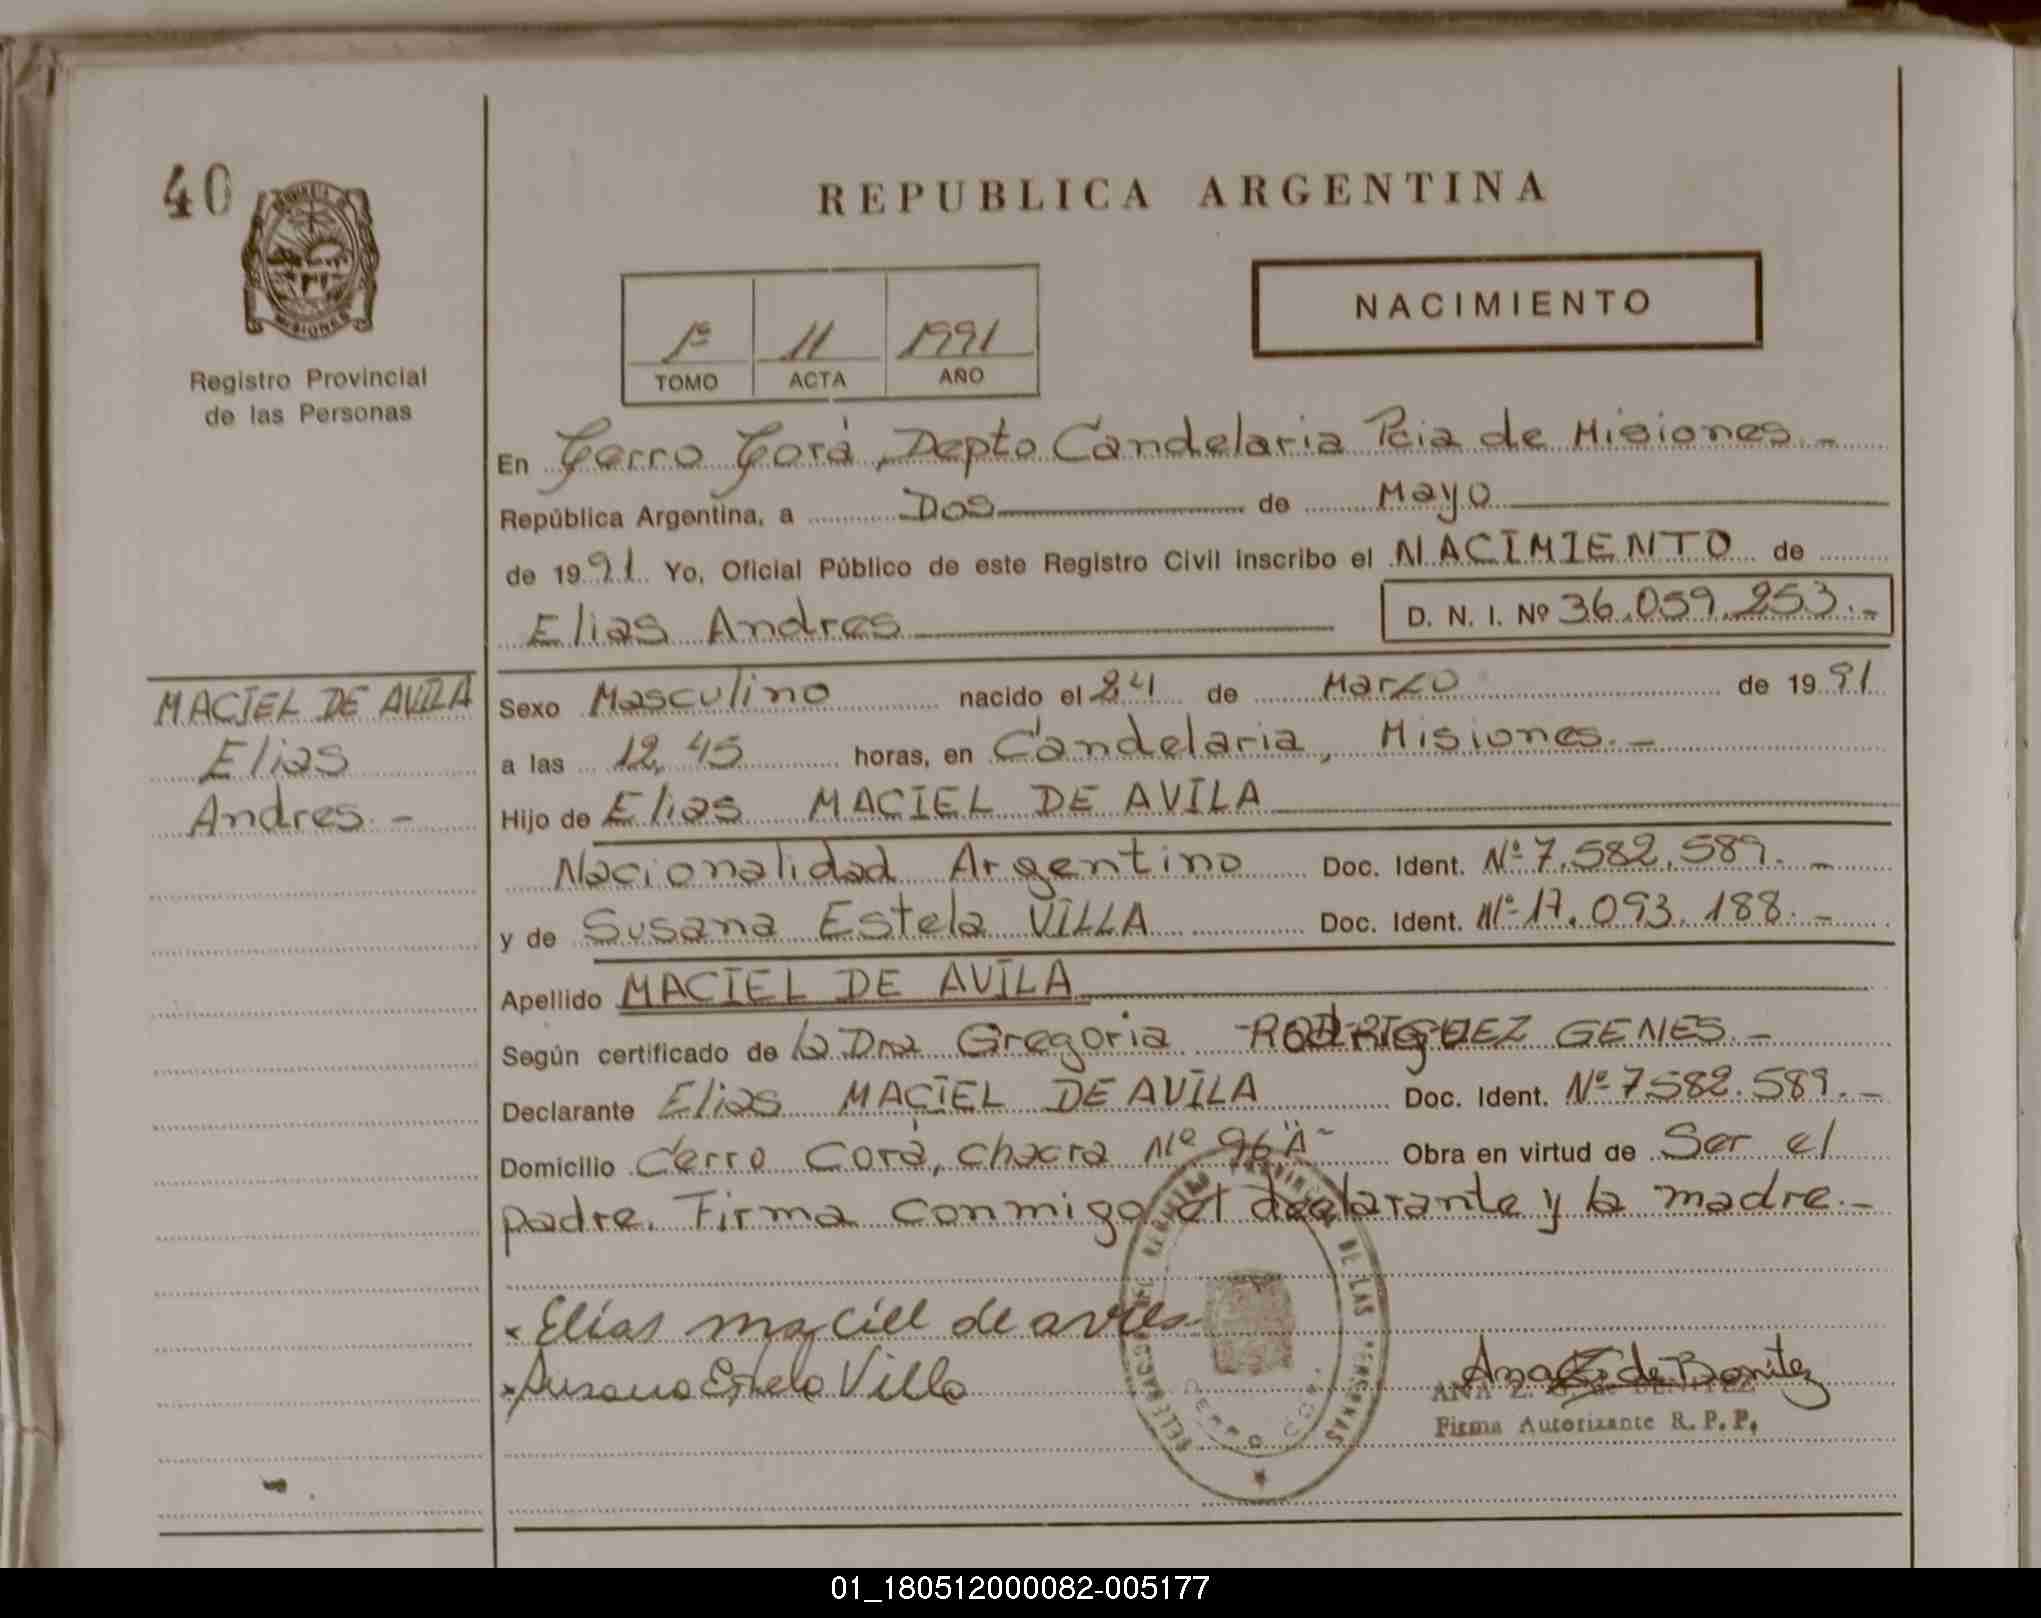 40
MISIONES
Registro Provincial
de las Personas
REPUBLICA ARGENTINA
NACIMIENTO
1º 11 1991
TOMO ACTA AÑO
En Cerro Corá, Depto Candelaria Pcia de Misiones.-
República Argentina, a Dos de Mayo
de 1991 Yo, Oficial Público de este Registro Civil inscribo el NACIMIENTO de
Elias Andres D. N. I. Nº 36.059.253.-
MACIEL DE AVILA
Elias
Andres.-
Sexo Masculino nacido el 24 de Marzo de 1991
a las 12,45 horas, en Candelaria, Misiones.-
Hijo de Elias MACIEL DE AVILA
Nacionalidad Argentino Doc. Ident. Nº 7.582.589.-
y de Susana Estela VILLA Doc. Ident. Nº 17.093.188.-
Apellido MACIEL DE AVILA
Según certificado de la Dra Gregoria RODRIGUEZ GENES.-
Declarante Elias MACIEL DE AVILA Doc. Ident. Nº 7582.589.-
Domicilio Cerro Corá, chacra Nº 96 "A" Obra en virtud de Ser el
padre. Firma conmigo el declarante y la madre.-
x Elias maciel de
x Susana Estela Villa
DE LAS PERSONAS
CERRO CORA
Ana de Benitez
ANA Z. BENITEZ
Firma Autorizante R. P. P.
01_180512000082-005177